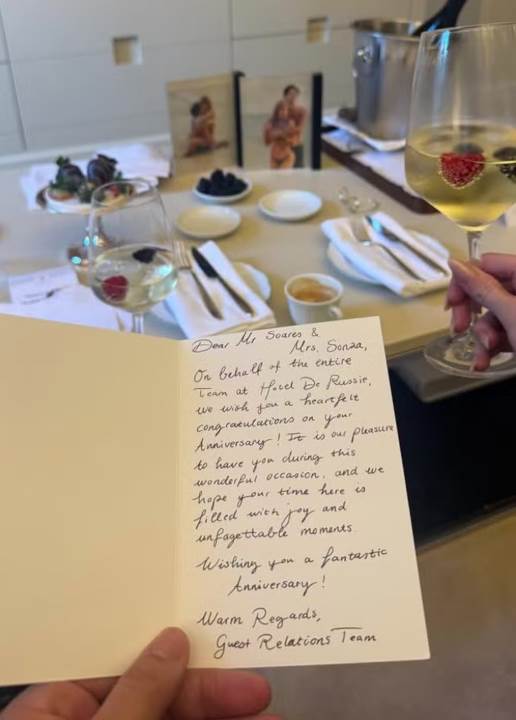 Dear Mr Soares &
Mrs. Sonza,
On behalf of the entire
Team at Hotel De Russie,
we wish you a heartfelt
congratulations on your
Anniversary! It is our pleasure
to have you during this
wonderful occasion, and we
hope your time here is
filled with joy and
unfagettable moments
Wishing you a fantastic
Anniversary!
Warm Regards,
Guest Relations Team